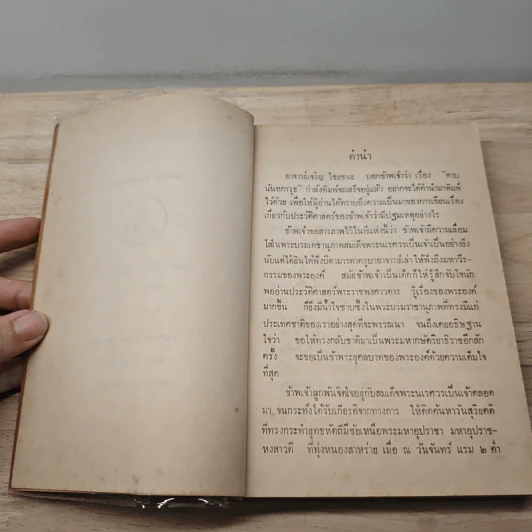 คำนำ
อาจารย์เจริญ ไชยชนะ บอกข้าพเจ้าว่า เรื่อง "ดาบ
นันทกาวุธ" กำลังพิมพ์จะเสร็จอยู่แล้ว อยากจะได้คำนำมาพิมพ์
ไว้ด้วย เพื่อให้ผู้อ่านได้ทราบถึงความเป็นมาของการเขียนเรื่อง
เกี่ยวกับประวัติศาสตร์ของข้าพเจ้าว่ามีปฐมเหตุอย่างไร
ข้าพเจ้าขอสารภาพไว้ในที่แห่งนี้ว่า ข้าพเจ้ามีความเลื่อม
ใสในพระบรมเดชานุภาพสมเด็จพระนเรศวรเป็นเจ้าเป็นอย่างยิ่ง
นับแต่ได้ยินได้ฟังบิดามารดาครูบาอาจารย์เล่า ให้ฟังถึงมหาวีร-
กรรมของพระองค์ สมัยข้าพเจ้าเป็นเด็กก็ให้รู้สึกจับใจนัก
พออ่านประวัติศาสตร์พระราชพงศาวดาร รู้เรื่องของพระองค์
มากขึ้น ก็ยิ่งมีน้ำใจซาบซึ้งในพระบรมราชานุภาพที่ทรงมีแก่
ประเทศชาติของเราอย่างสุดที่จะพรรณนา จนถึงเคยอธิษฐาน
ใจว่า ขอให้ทรงกลับชาติมาเป็นพระมหากษัตริยาธิราชอีกสัก
ครั้ง จะขอเป็นข้าพระยุคลบาทของพระองค์ด้วยความเต็มใจ
ที่สุด
ข้าพเจ้าผูกพันจิตใจอยู่กับสมเด็จพระนเรศวรเป็นเจ้าตลอด
มา, จนกระทั่งได้รับเกียรติจากทางการ ให้คิดค้นหาวันสุริยคติ
ที่ทรงกระทำยุทธหัตถีมีชัยเหนือพระมหาอุปราชา มหาอุปราช-
หงสาวดี ที่ทุ่งหนองสาหร่าย เมื่อ ณ วันจันทร์ แรม ๒ ค่ำ